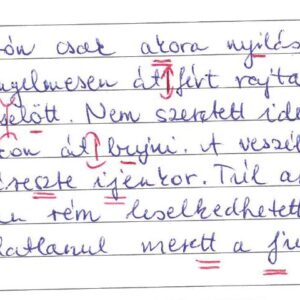 ón csak akora nyilás
nyelmesen átfért rajta
előtt. Nem szeretett ide
kon át bujni. A veszél
részte ijenkor. Túl a
rém leselkedhetett
latlanul merett a